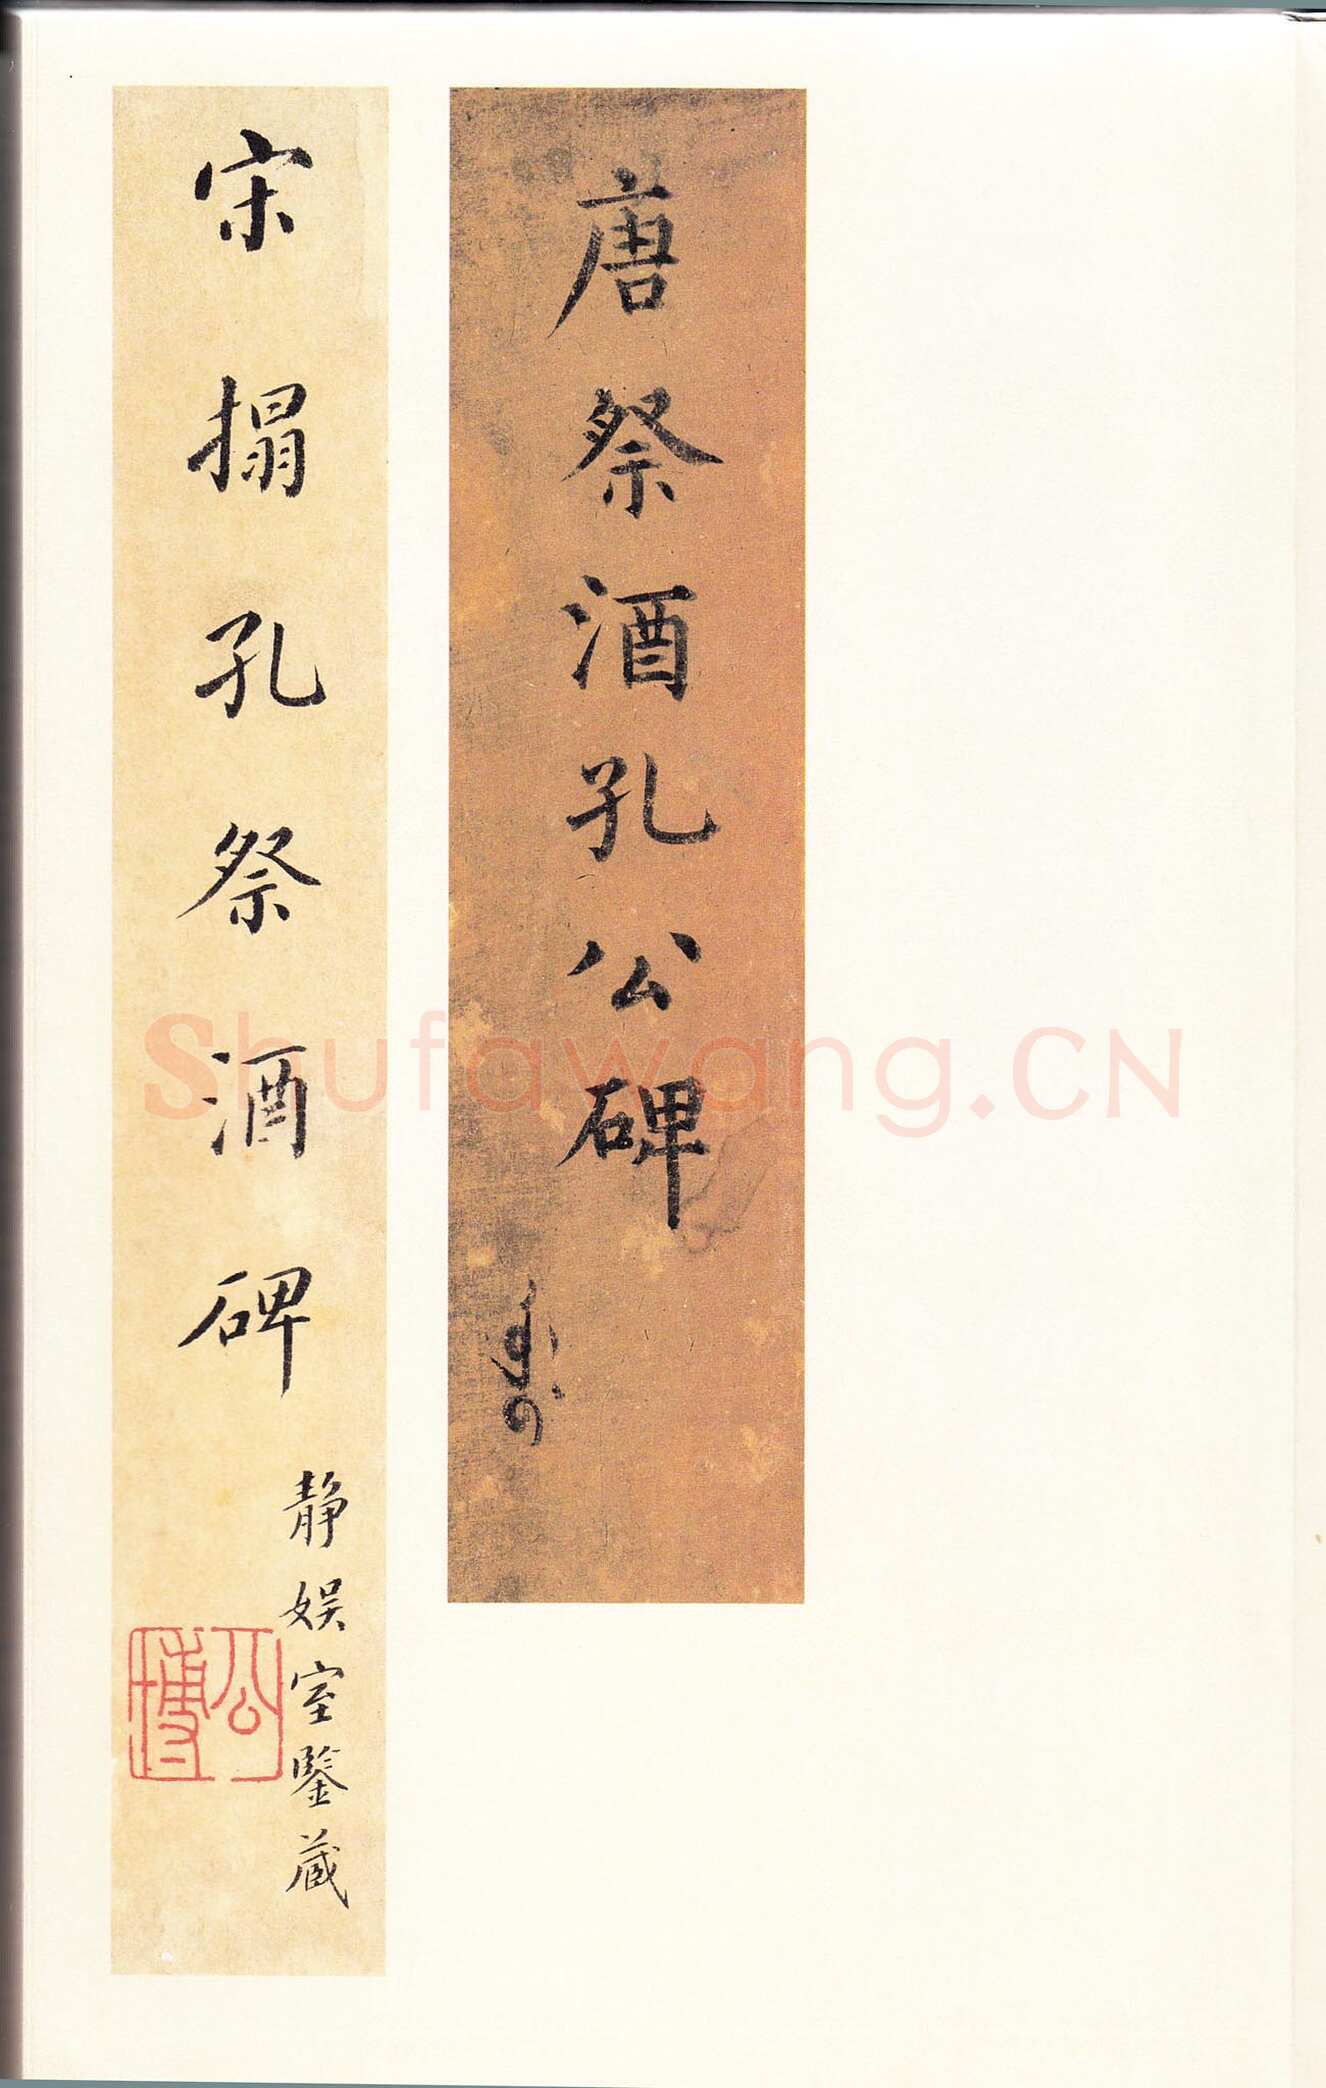 唐祭酒孔公碑
宋搨孔祭酒碑
静娱室鑒蔵
公博
Shufawang.CN